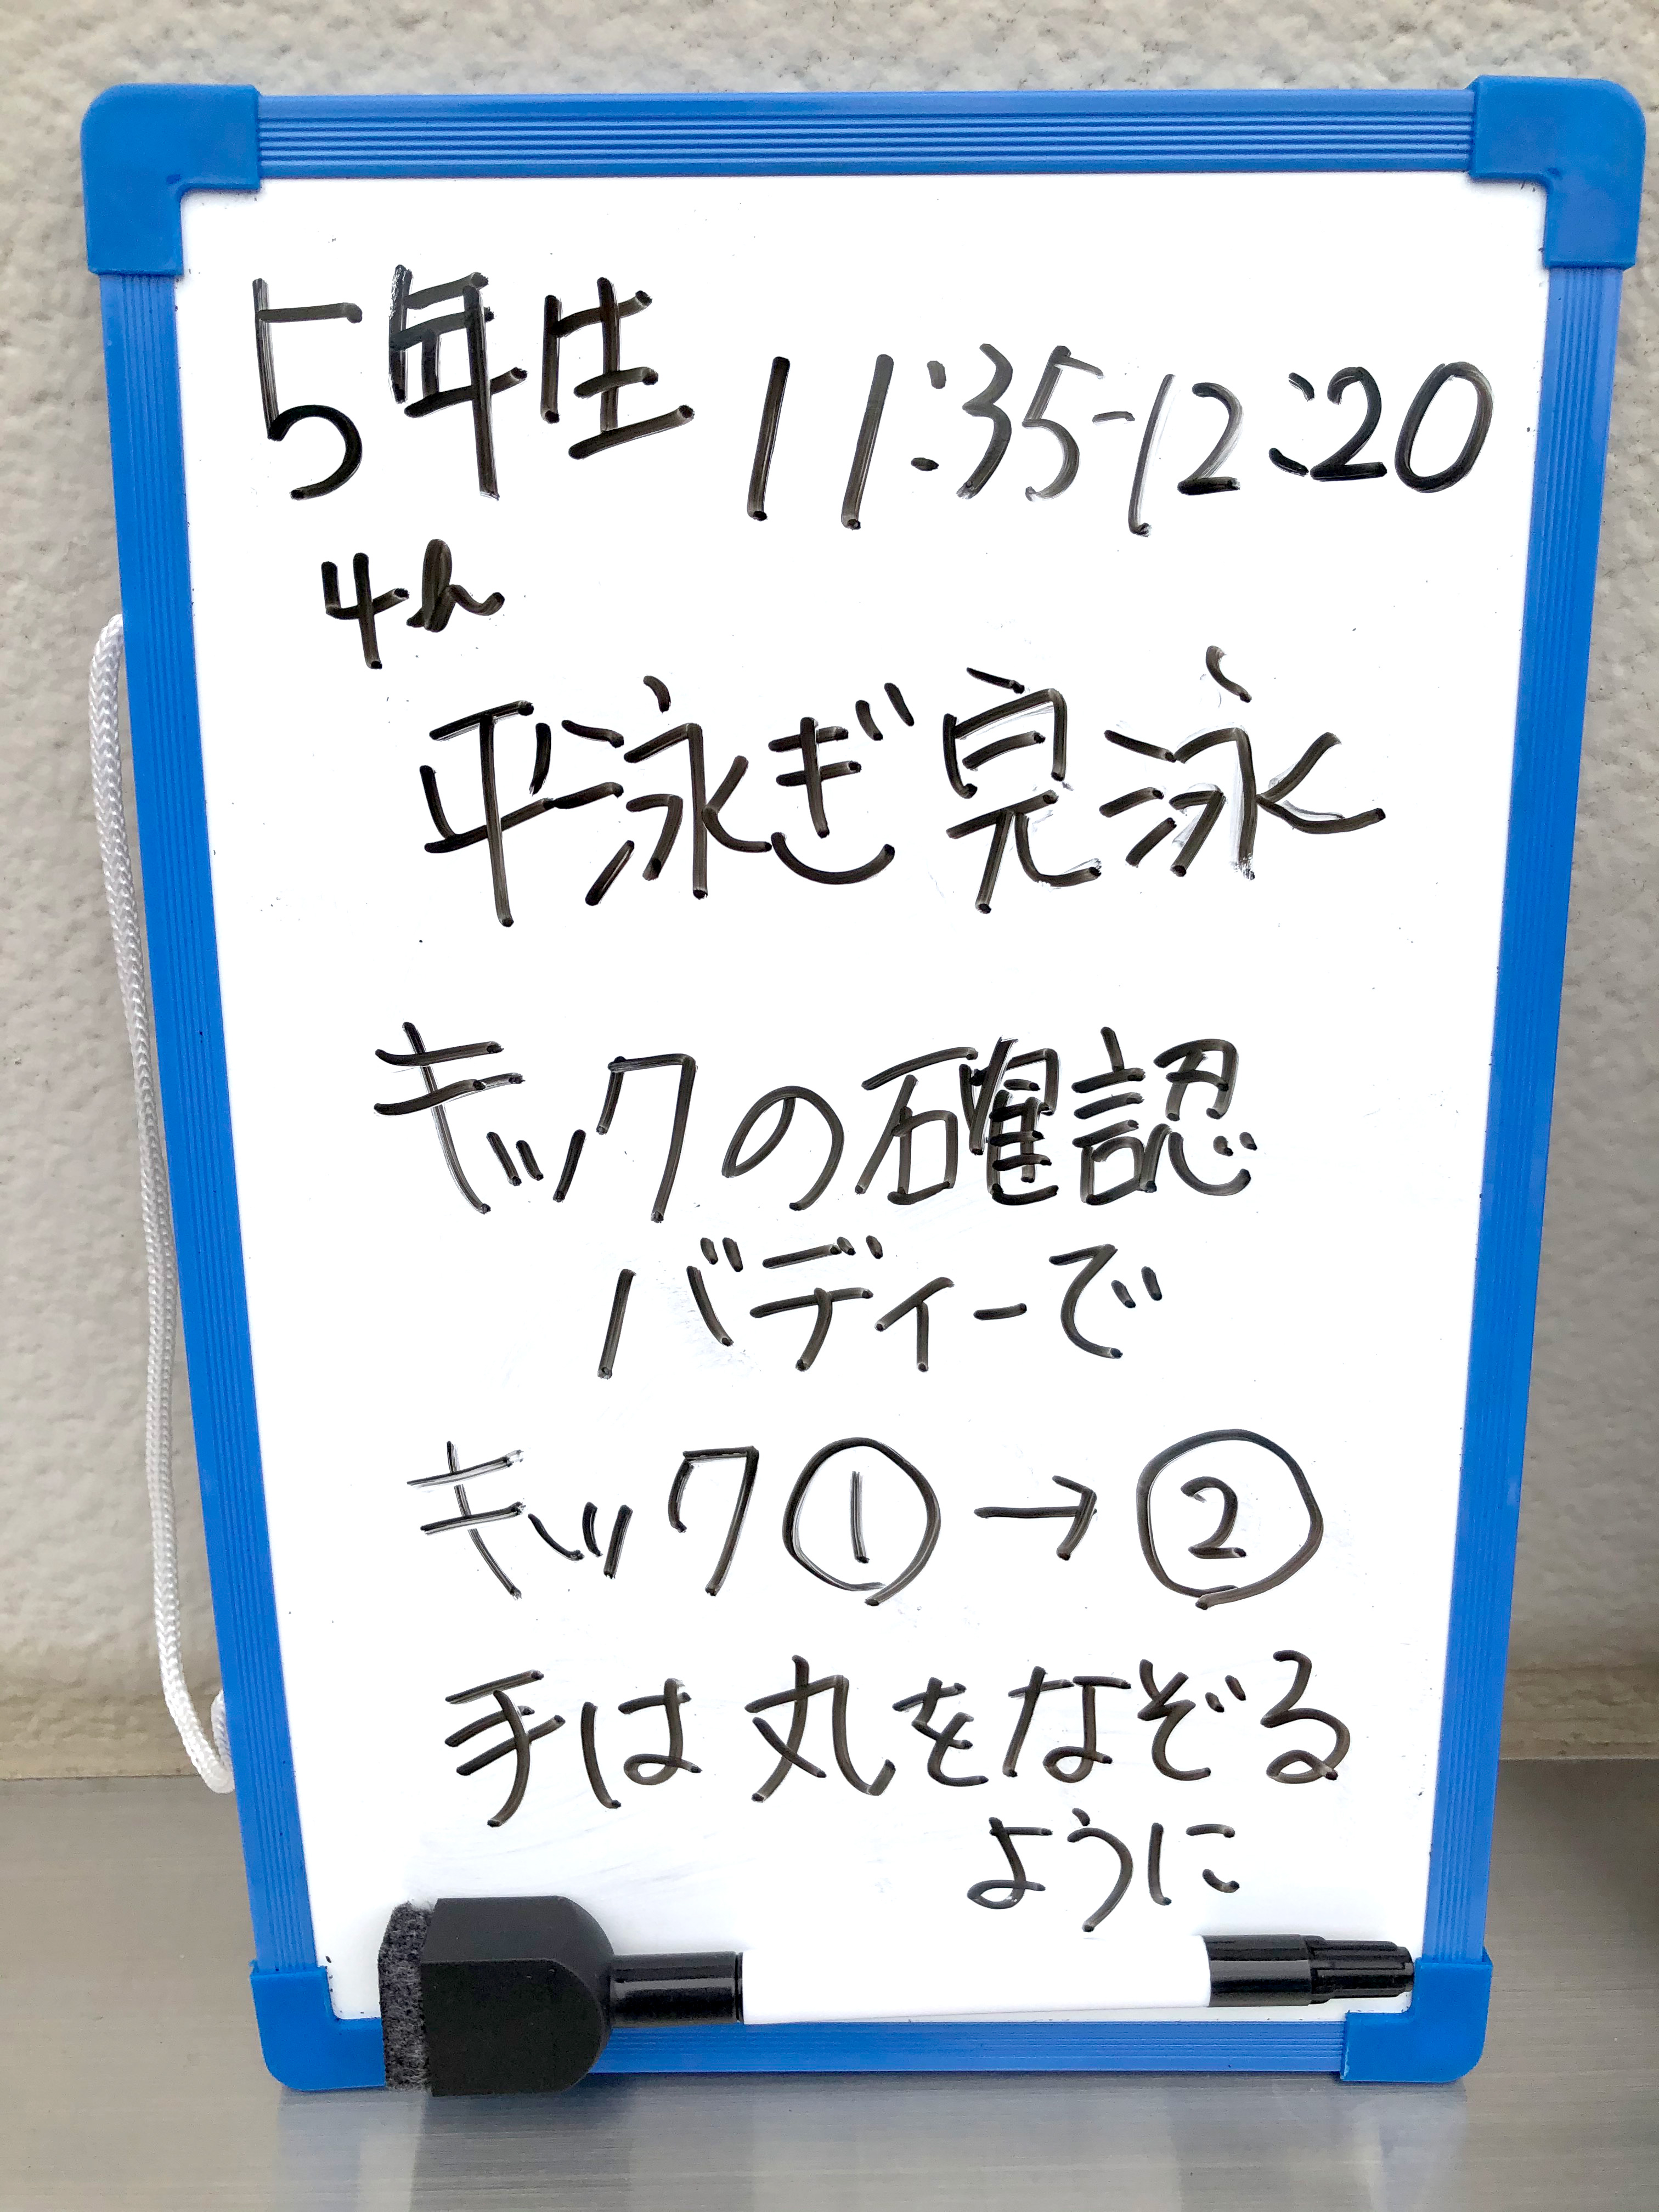 5年生 11:35-12:20
4h
平泳ぎ完泳
キックの確認
バディーで
キック①→②
手は丸をなぞる
ように